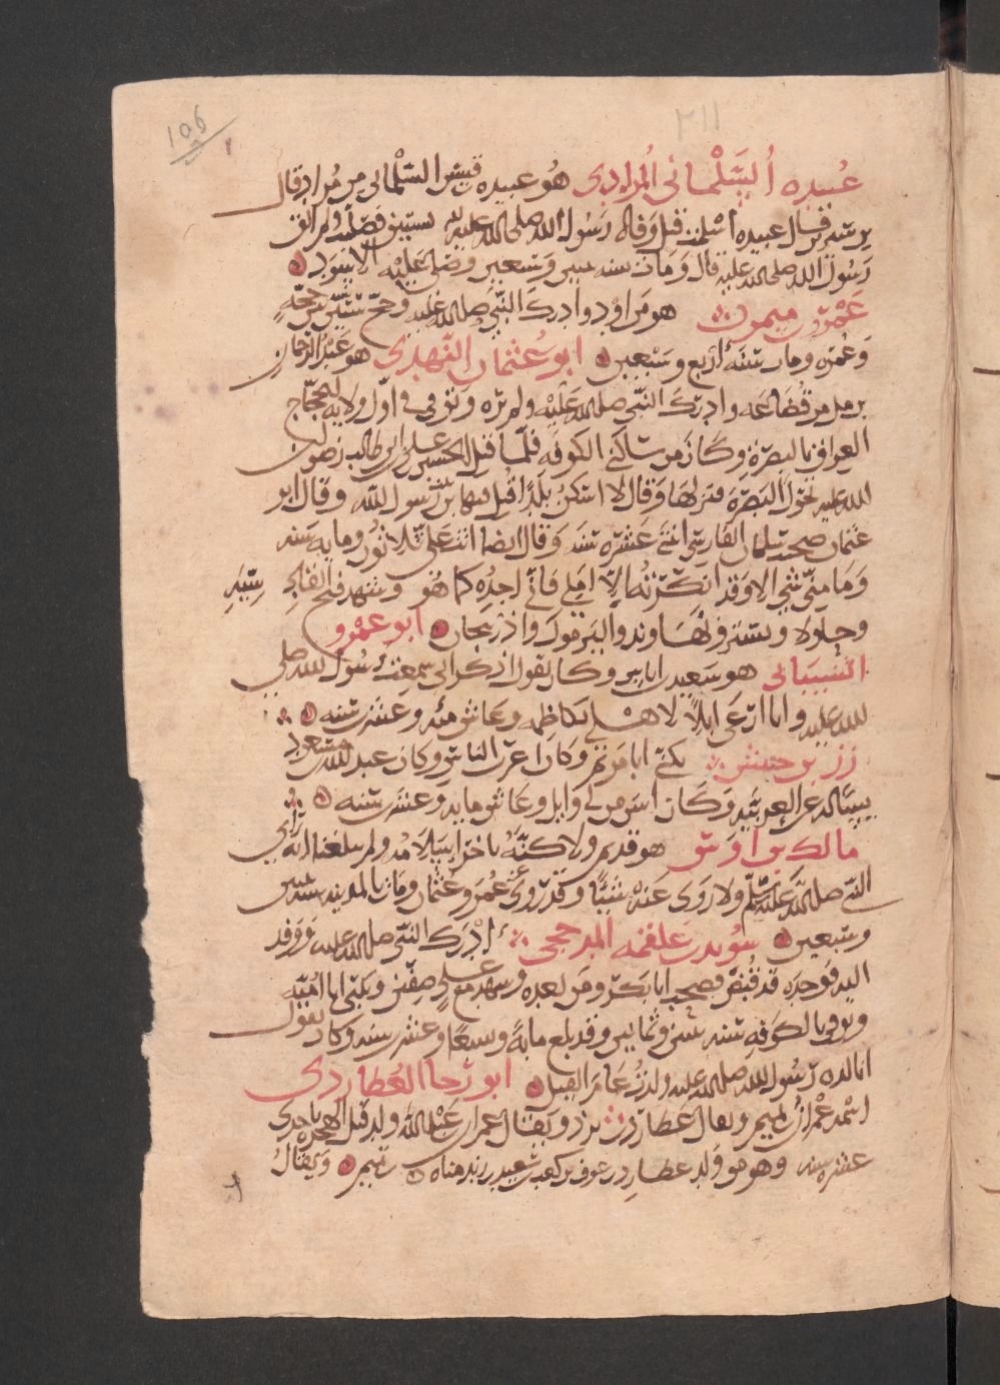 106
٢١١
عُبيده السَّلْماني المُرادي هُو عبيده قيس السَّلْماني من مُراد قال
بن سيرين قال عبيده اسْلمت قبل وفاه رَسُول الله صلى الله عليه بسنتين فصليت ولم الق
رَسُول الله صلى الله عليه قال وَمات سنه ثنتين وسَبعين وصلى عليْه الاسْوَد
عَمْرو بن ميمون هو من اوْد وادركَ النَّبي صلى الله عليه وحَجّ ستّين حجّهً
وعُمْرَه ومات سَنَه أرْبع وسَبْعين ابو عُثمان النَّهدى هو عَبْد الرَّحمان
بن مل من قُضَاعَه وادرَك النَّبي صلى الله عليْه ولم يَرَه وتوفى في اوّل ولايه الحجّاج
العراق بالبصْرة وكانَ من سَاكني الكوفَه فلمّا قتل الحسين بن علي بن ابي طالب رضوان
الله عليه تحوّل البَصْرَه فنزلهَا وَقال لا اسْكنُ بلدًا قُتل فيها بن بنت رسول الله وقال ابو
عثمان صحبت سلمان الفارسي اثنتي عَشرَه سَنَه وَقال ايضا اتت علي ثلاثون ومايه سَنه
وَمَا منّي شي الا وَقد انكَرْتهُ الا املي فانّي اجدُه كما هُو وشهد فتح القادسيّهِ
وجلولا وتستر ونَهَاوند واليَرموك واذربيجان ابو عَمْرو
الشيبانى هو سَعيد بن اياس وكان يقول اذكر اني سمعْت برسُول الله صلى
الله عليه وانا ارْعَى ابلاً لاهلى بكاظمه وعاش مئه وعشرين سنه
زر بن حبيش يكنى ابا مَريم وكان اعْرَب الناس وكان عبد الله بن مسْعود
يسَالُه عن العربيّه وَكان اسَن من ابي وايل وعاش مايه وعشرين سنه
مالك بن اوس هو قديم ولاكنّهُ تاخر اسْلامُه ولم يبلغنا انه رَأى
النَّبي صلى الله عليه وسلّم ولا رَوى عَنه شَيْئا وقد رَوى عن عُمَر وعُثمان ومات بالمدينه سنه ثنتين
وسَبعين سُويد بن غفله المذحجي ادْرَك النَّبي صلى الله عليه وَوَفد
اليه فوجدَه قد قُبض فصحب ابا بَكر ومن بَعده وشهد مع علي صفين ويكنى ابا اُميّه
وتوفي بالكوفَه سَنه ثنتين وثمانين وقد بلغ مايةً وسَبعًا وعشرين سنه وكان يقول
انا لده رَسُول الله صلى الله عليه ولدتُ عامَ الفيل ابو رَجا العُطاردى
اسْمه عمْران بن تميم ويقال عُطارد بن برز ويقال عمران بن عبد الله ولد قبل الهجره باحدى
عشره سنه وهو من وَلد عطارد بن عوف بن كعب بن سَعيد بن زيد مناه بن تميم وَيقالُ